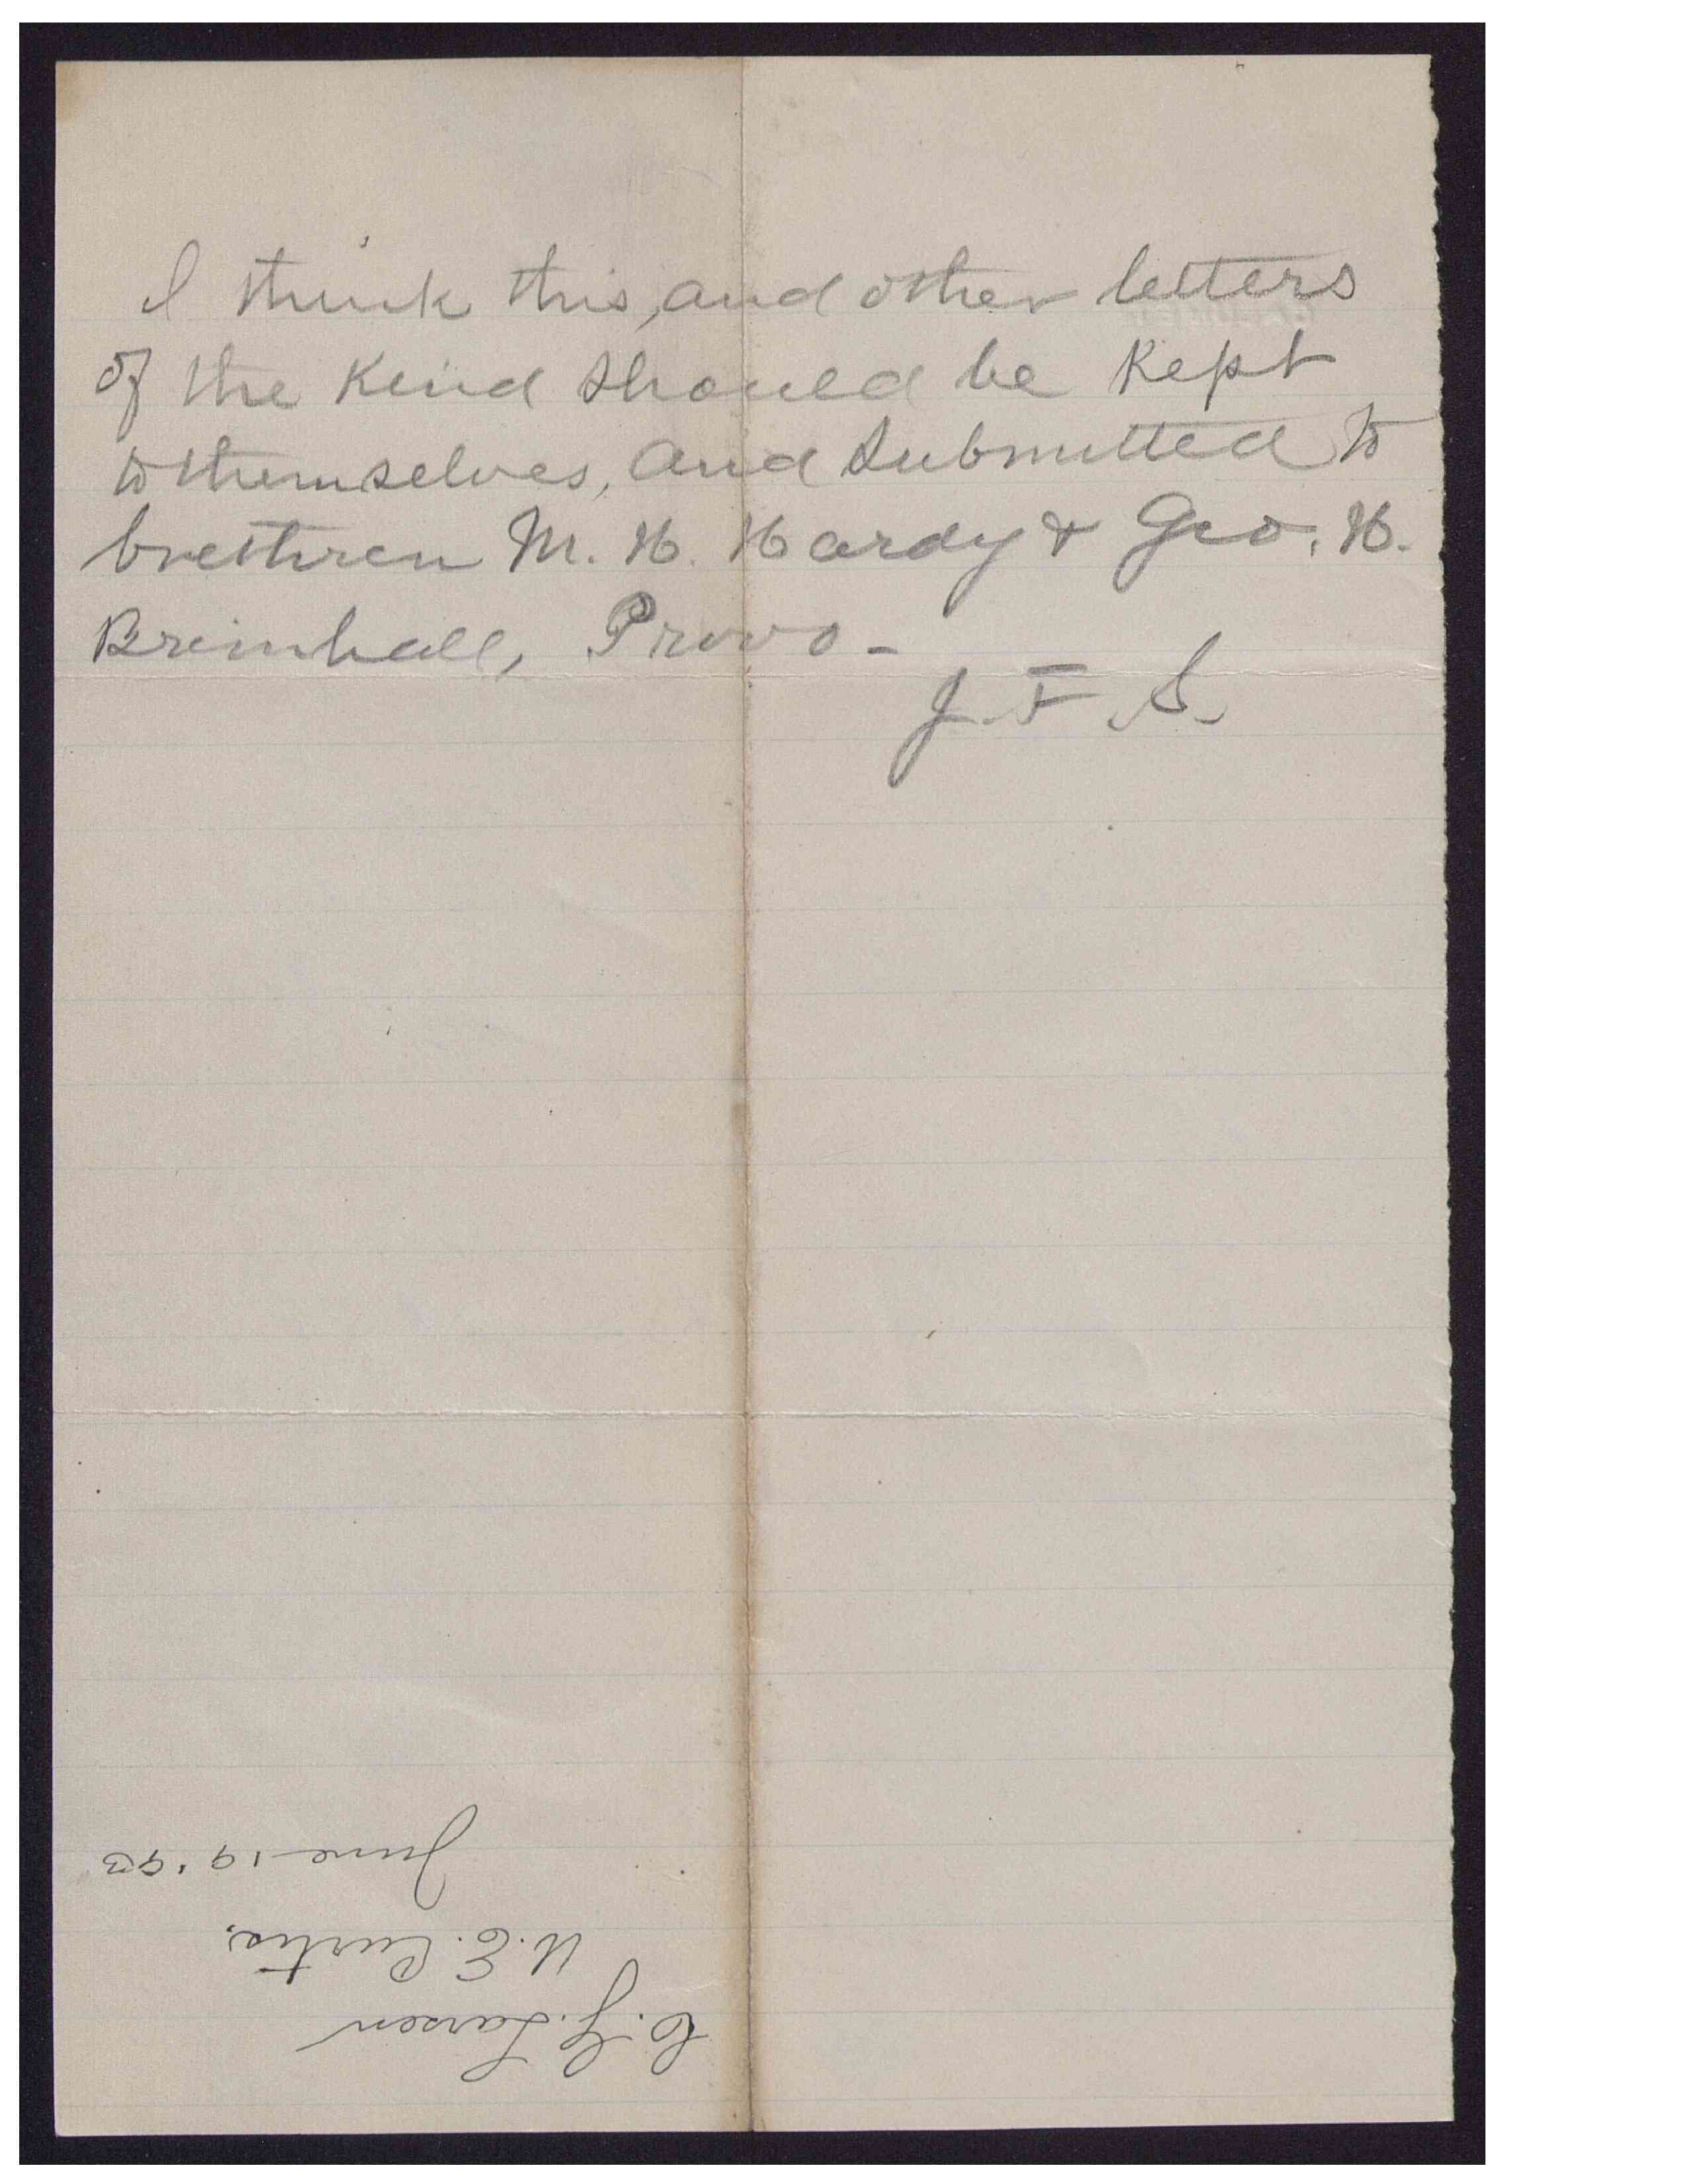 I think this, and other letters
of the kind should be kept
to themselves, and submitted to
brethren M. H. Hardy & Geo. H.
Brimhall, Provo -
J. F. S.
C. G. Larsen
U. E. Curtis.
June 19 '93